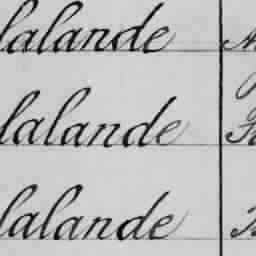 lalande
lalande
lalande